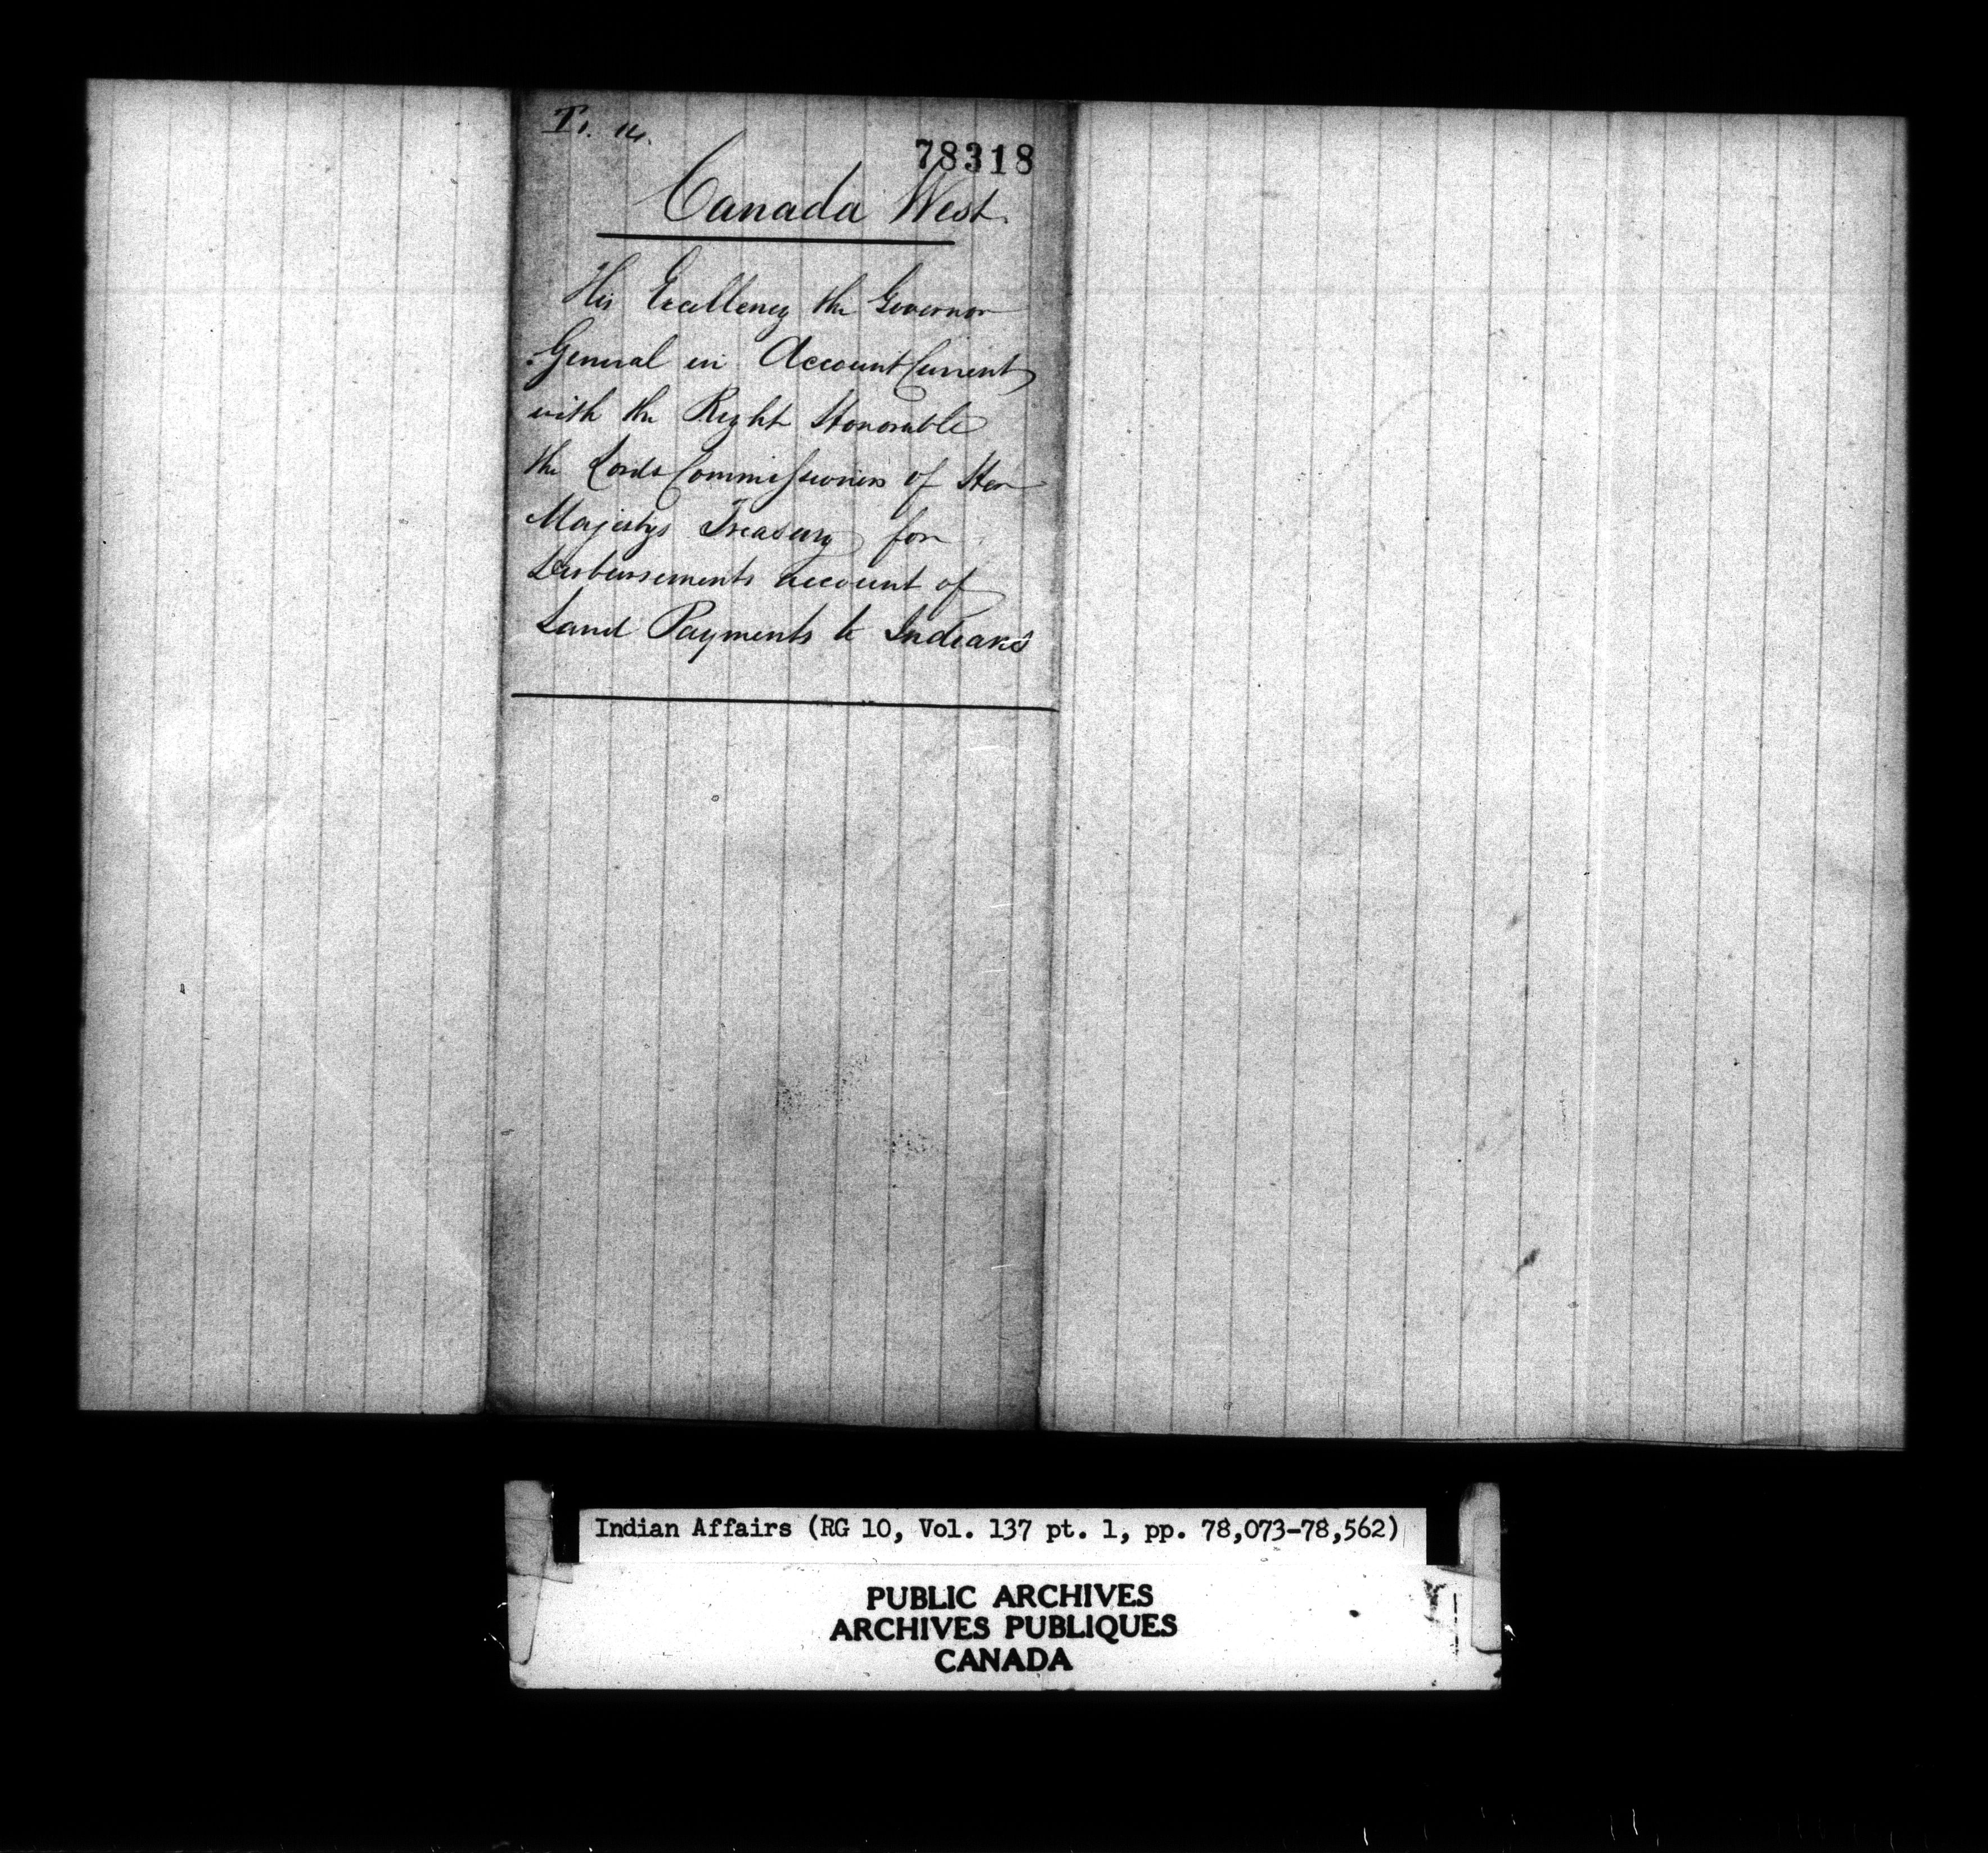 78318
Canada West.
His Excellency the Governor
General in Account Current
with the Right Honorable
the Lords Commissioners of Her
Majestys Treasury for
Disbursements account of
Land Payments to Indians
Indian Affairs (RG 10, Vol. 137 pt. 1, pp. 78,073-78,562)
PUBLIC ARCHIVES
ARCHIVES PUBLIQUES
CANADA